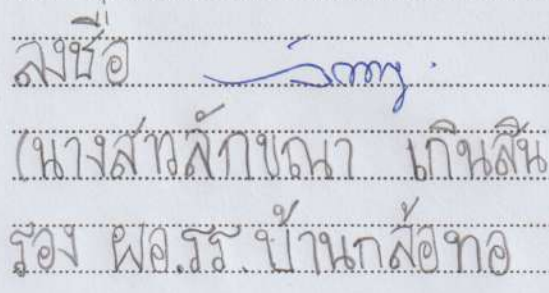 ลงชื่อ
(นางสาวลักขณา เกินสิน
รอง ผอ.รร.บ้านกล้อทอ